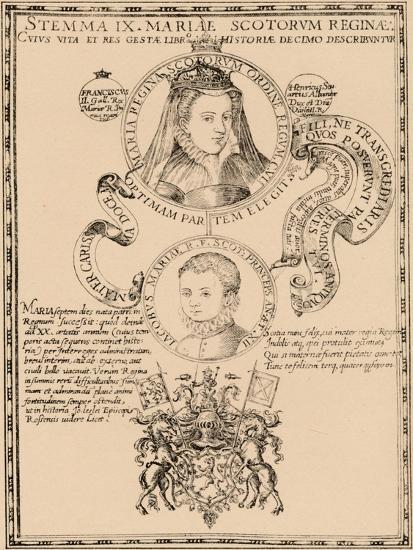 STEMMA IX. MARIAE SCOTORVM REGINAE:
CVIVS VITA ET RES GESTÆ LIBRO HISTORIÆ DECIMO DESCRIBVNTVR
FRANCISCVS
II. Gall. Rex
Mariæ R. Sp
Henricus Stu
artus Albaniæ
Dux et Drs
MARIA REGINA SCOTORVM ORDINE REGVM CVII
OPTIMAM PARTEM ELEGIT
FILI, NE TRANSGREDIARIS
TERMINOS ANTIQVO
QVOS POSVERVNT PA
TRES TVI
MATER CARIS
DOCE
IACOBVS MARIAE R. F. SCOT. PRINCEPS AN. ÆT. VII
MARIA septem dies nata patri in
Regnum successit: quod deinde
ad XX. ætatis annum (cuius tem
poris acta sequens continet histo
ria) per Interreges administratum,
brevi interim, ab externo aut
civili bello vacavit. Verum Regina
in summis rerū difficultatibus sum
mam et admirandā planè animi
fortitudinem semper ostendit,
ut in historia Io. Leslei Episcopi
Rossensis videre licet.
Scotia tunc felix, cui mater regia Regem
Indolis atq; spei protulit eximiæ
Qui si maternæ fuerit pietatis
Tunc te felicem terq; quaterq;